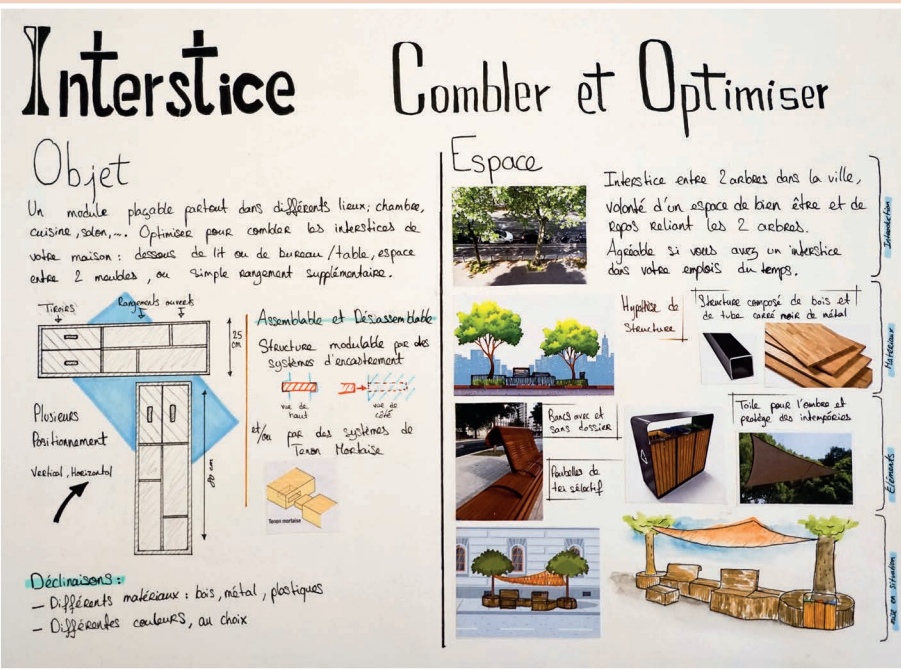 Interstice
Combler et Optimiser
Objet
Un module plaçable partout dans différents lieux; chambre,
cuisine, salon,... Optimiser pour combler les interstices de
votre maison : dessous de lit ou de bureau / table, espace
entre 2 meubles, ou simple rangement supplémentaire.
Tiroirs
Rangements ouverts
25
cm
Plusieurs
Positionnement
Vertical, Horizontal
Assemblable et Désassemblable
Structure modulable par des
systèmes d'encastrement
vue de
haut
vue de
côté
et/ou par des systèmes de
Tenon Mortaise
Tenon mortaise
Déclinaisons :
– Différents matériaux : bois, métal, plastiques
– Différentes couleurs, au choix
Espace
Interstice entre 2 arbres dans la ville,
volonté d'un espace de bien être et de
Repos reliant les 2 arbres.
Agréable si vous avez un interstice
dans votre emplois du temps.
Introduction
Hypothèse de
Structure
Structure composé de bois et
de tube carré noir de métal
Matériaux
Bancs avec et
sans dossier
Poubelles de
tri sélectif
Toile pour l'ombre et
protège des intempéries
Éléments
mise en situation